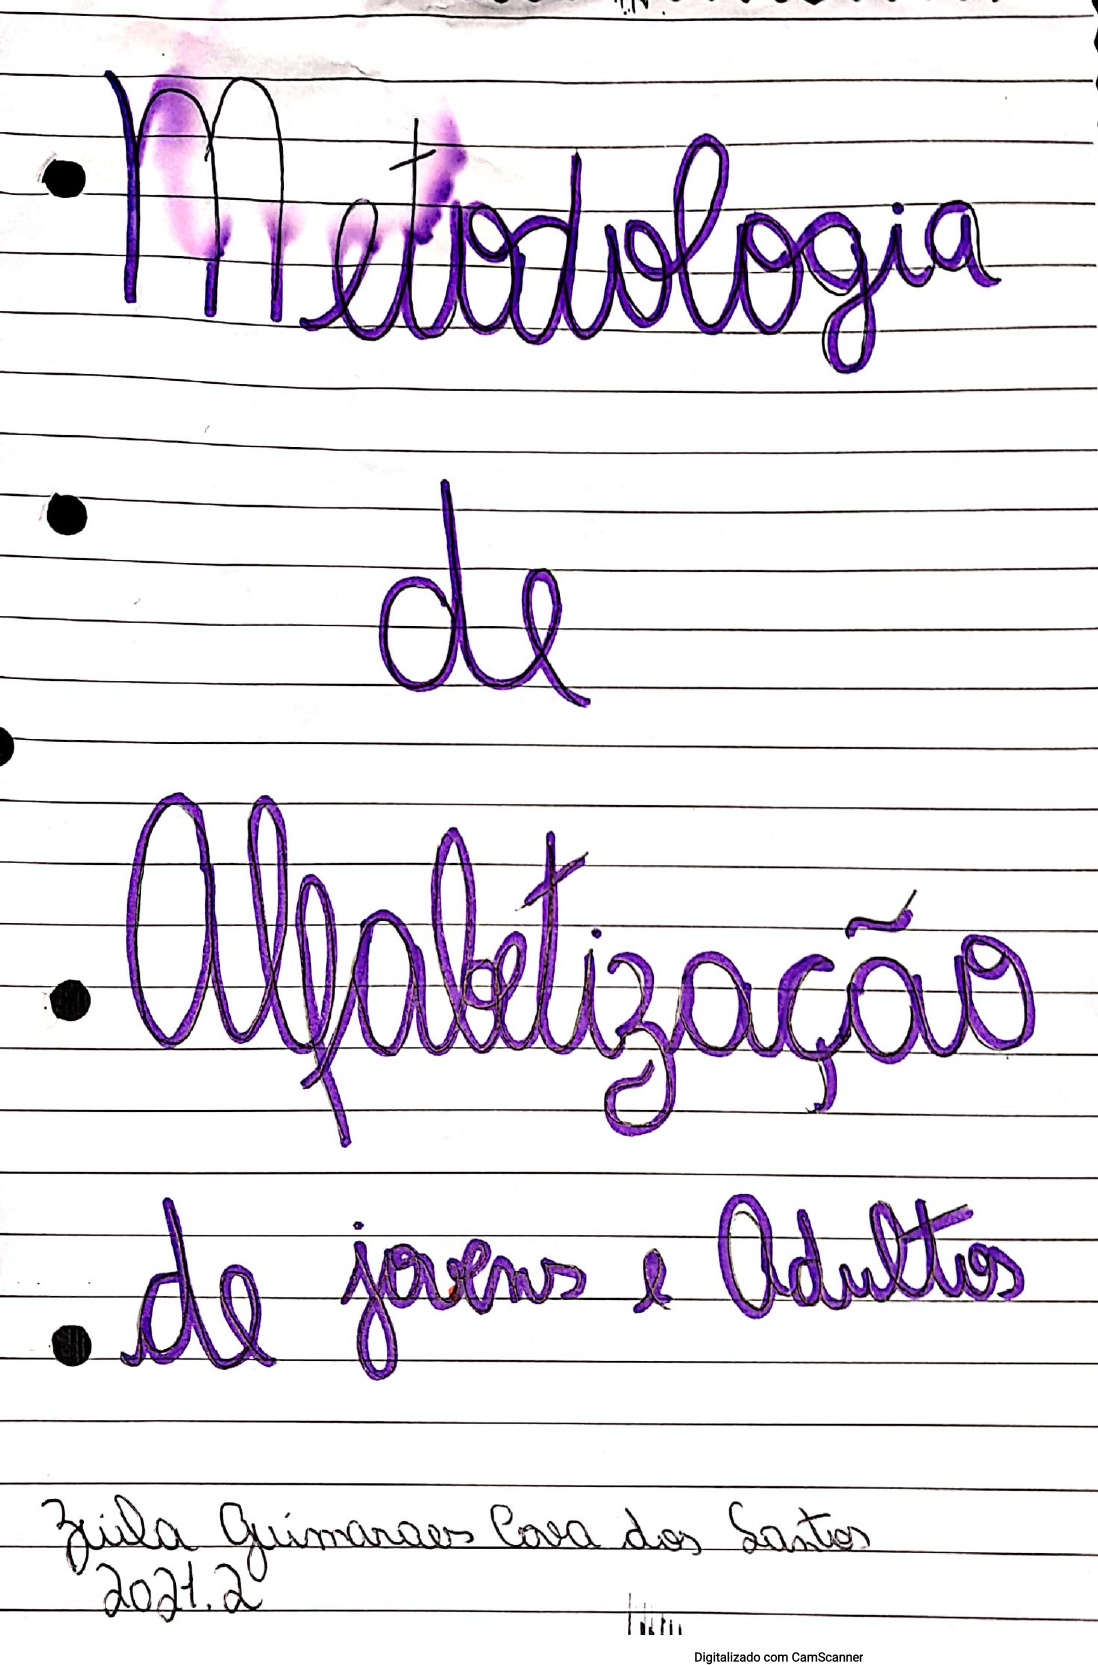 Metodologia
de
Alfabetização
de jovens e Adultos
Zuila Guimaraes Cova dos Santos
2021.2
Digitalizado com CamScanner